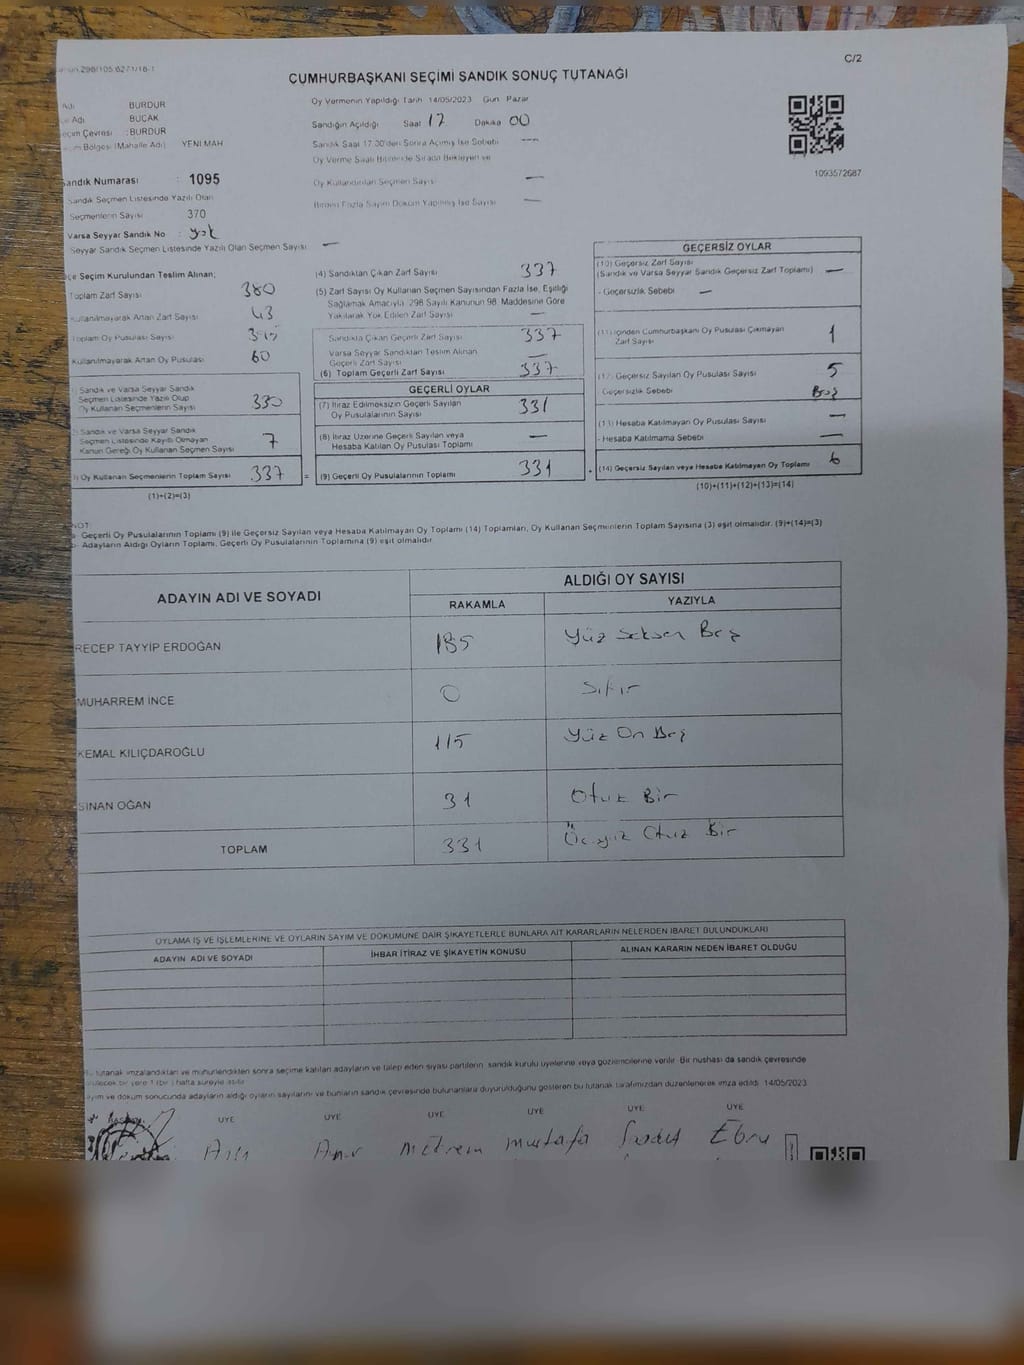 298/105.6271/18-1
C/2
CUMHURBAŞKANI SEÇİMİ SANDIK SONUÇ TUTANAĞI
Adı BURDUR
Adı BUCAK
Seçim Çevresi : BURDUR
Bölgesi (Mahalle Adı) YENİ MAH
Sandık Numarası : 1095
Sandık Seçmen Listesinde Yazılı Olan
Seçmenlerin Sayısı 370
Varsa Seyyar Sandık No : yok
Seyyar Sandık Seçmen Listesinde Yazılı Olan Seçmen Sayısı —
Oy Vermenin Yapıldığı Tarih 14/05/2023 Gün Pazar
Sandığın Açıldığı Saat 17 Dakika 00
Sandık Saat 17.00'den Sonra Açılmış İse Sebebi —
Oy Verme Saati Bitiminde Sırada Bekleyen ve
Oy Kullandırılan Seçmen Sayısı —
Birden Fazla Sayım Döküm Yapılmış İse Sayısı —
1093572687
İlçe Seçim Kurulundan Teslim Alınan;
Toplam Zarf Sayısı 380
Kullanılmayarak Artan Zarf Sayısı 43
Toplam Oy Pusulası Sayısı
Kullanılmayarak Artan Oy Pusulası 60
Sandık ve Varsa Seyyar Sandık
Seçmen Listesinde Yazılı Olup
Oy Kullanan Seçmenlerin Sayısı 330
Sandık ve Varsa Seyyar Sandık
Seçmen Listesinde Kayıtlı Olmayan
Kanun Gereği Oy Kullanan Seçmen Sayısı 7
Oy Kullanan Seçmenlerin Toplam Sayısı 337
(1)+(2)=(3)
(4) Sandıktan Çıkan Zarf Sayısı 337
(5) Zarf Sayısı Oy Kullanan Seçmen Sayısından Fazla İse, Eşitliği
Sağlamak Amacıyla 298 Sayılı Kanunun 98. Maddesine Göre
Yakılarak Yok Edilen Zarf Sayısı —
Sandıkta Çıkan Geçerli Zarf Sayısı 337
Varsa Seyyar Sandıktan Teslim Alınan
Geçerli Zarf Sayısı —
(6) Toplam Geçerli Zarf Sayısı 337
GEÇERLİ OYLAR
(7) İtiraz Edilmeksizin Geçerli Sayılan
Oy Pusulalarının Sayısı 331
(8) İtiraz Üzerine Geçerli Sayılan veya
Hesaba Katılan Oy Pusulası Toplamı —
= (9) Geçerli Oy Pusulalarının Toplamı 331
GEÇERSİZ OYLAR
(10) Geçersiz Zarf Sayısı
(Sandık ve Varsa Seyyar Sandık Geçersiz Zarf Toplamı) —
- Geçersizlik Sebebi —
(11) İçinden Cumhurbaşkanı Oy Pusulası Çıkmayan
Zarf Sayısı 1
(12) Geçersiz Sayılan Oy Pusulası Sayısı 5
Geçersizlik Sebebi Boş
(13) Hesaba Katılmayan Oy Pusulası Sayısı —
- Hesaba Katılmama Sebebi —
+ (14) Geçersiz Sayılan veya Hesaba Katılmayan Oy Toplamı 6
(10)+(11)+(12)+(13)=(14)
NOT:
a- Geçerli Oy Pusulalarının Toplamı (9) ile Geçersiz Sayılan veya Hesaba Katılmayan Oy Toplamı (14) Toplamları, Oy Kullanan Seçmenlerin Toplam Sayısına (3) eşit olmalıdır. (9)+(14)=(3)
b- Adayların Aldığı Oyların Toplamı, Geçerli Oy Pusulalarının Toplamına (9) eşit olmalıdır
ADAYIN ADI VE SOYADI
ALDIĞI OY SAYISI
RAKAMLA YAZIYLA
RECEP TAYYİP ERDOĞAN 185 Yüz Seksen Beş
MUHARREM İNCE 0 Sıfır
KEMAL KILIÇDAROĞLU 115 Yüz On Beş
SİNAN OĞAN 31 Otuz Bir
TOPLAM 331 Üçyüz Otuz Bir
OYLAMA İŞ VE İŞLEMLERİNE VE OYLARIN SAYIM VE DÖKÜMÜNE DAİR ŞİKAYETLERLE BUNLARA AİT KARARLARIN NELERDEN İBARET BULUNDUKLARI
ADAYIN ADI VE SOYADI İHBAR İTİRAZ VE ŞİKAYETİN KONUSU ALINAN KARARIN NEDEN İBARET OLDUĞU
tutanak imzalandıktan ve mühürlendikten sonra seçime katılan adayların ve talep eden siyasi partilerin sandık kurulu üyelerine veya gözlemcilerine verilir. Bir nüshası da sandık çevresinde
bir yere 1 (bir) hafta süreyle asılır
Sayım ve döküm sonucunda adayların aldığı oyların sayılarını ve bunların sandık çevresinde bulunanlara duyurulduğunu gösteren bu tutanak tarafımızdan düzenlenerek imza edildi. 14/05/2023
BAŞKAN ÜYE ÜYE ÜYE ÜYE ÜYE ÜYE
Meltem Mustafa Ebru